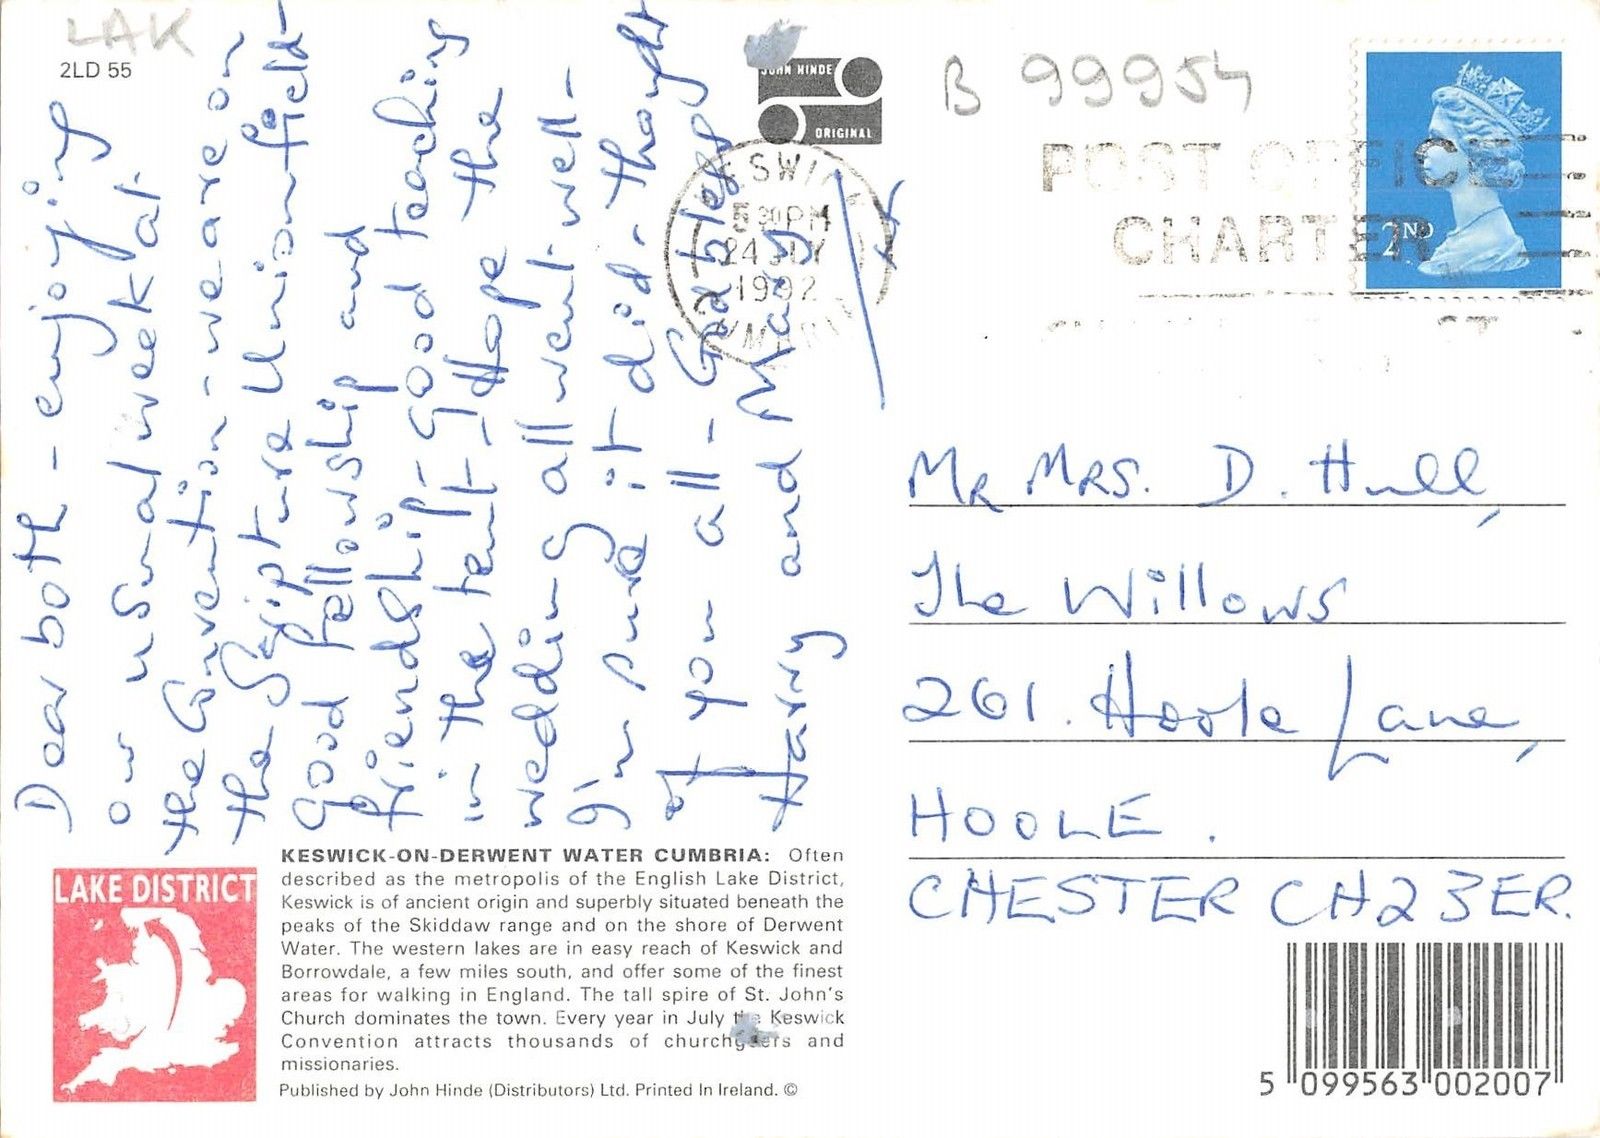 LAK
2LD 55
Dear both - enjoying
our usual week at
the Convention - we are on
the Scripture Union field -
good fellowship and
friendship - good teaching
in the tent - I Hope the
wedding all went well -
I'm sure it did - thought
of you all - God bless
Harry and Mary
JOHN HINDE
ORIGINAL
B 99954
KESWICK
5 30 PM
24 JLY
1992
CUMBRIA
POST OFFICE
CHARTER
2ND
Mr Mrs. D. Hull,
The Willows
261. Hoole Lane,
HOOLE.
CHESTER CH2 3ER.
LAKE DISTRICT
KESWICK-ON-DERWENT WATER CUMBRIA: Often
described as the metropolis of the English Lake District,
Keswick is of ancient origin and superbly situated beneath the
peaks of the Skiddaw range and on the shore of Derwent
Water. The western lakes are in easy reach of Keswick and
Borrowdale, a few miles south, and offer some of the finest
areas for walking in England. The tall spire of St. John's
Church dominates the town. Every year in July the Keswick
Convention attracts thousands of churchgoers and
missionaries.
Published by John Hinde (Distributors) Ltd. Printed In Ireland. ©
5 099563 002007